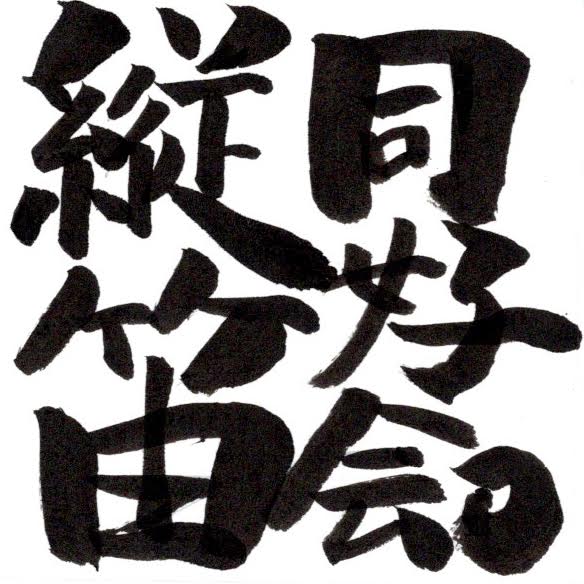 同好会の
縦笛